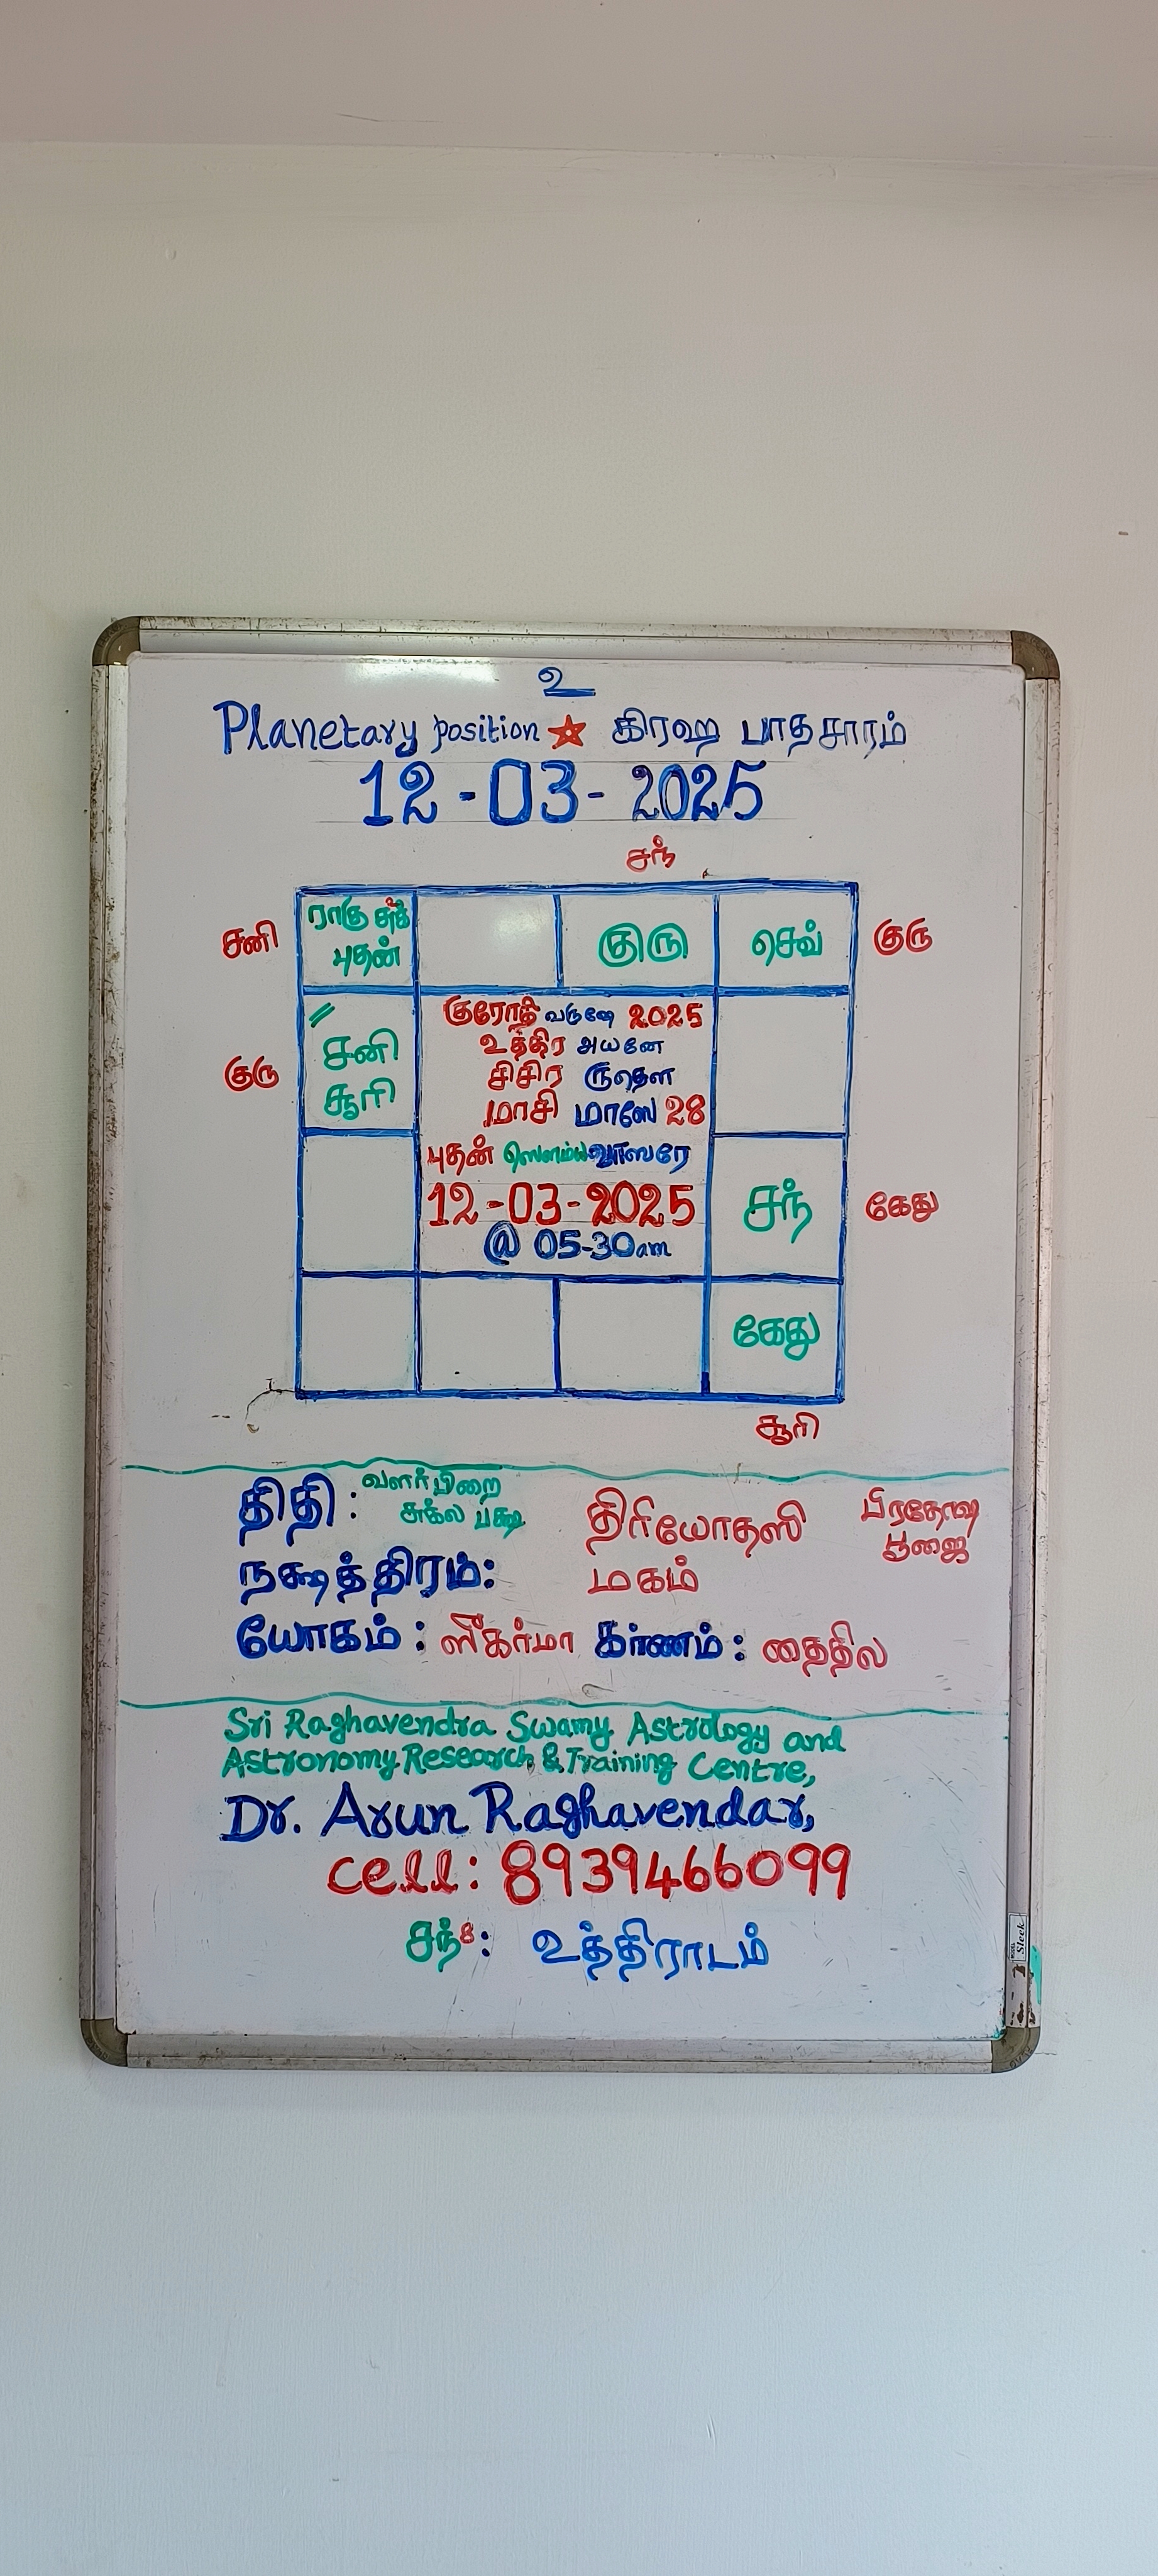 உ
Planetary position ☆ கிரஹ பாதசாரம்
12-03-2025
சந்
சனி ராகு சுக் குரு செவ் குரு
புதன்
குரோதி வருஷே 2025
உத்திர அயனே
குரு சனி சிசிர ருதௌ
சூரி மாசி மாஸே 28
புதன் ஸௌம்ய வாஸரே
12-03-2025 சந் கேது
@ 05-30am
கேது
சூரி
திதி: வளர்பிறை திரியோதஸி பிரதோஷ
சுக்ல பக்ஷ பூஜை
நக்ஷத்திரம்: மகம்
யோகம்: ஸீகர்மா கர்ணம்: தைதில
Sri Raghavendra Swamy Astrology and
Astronomy Research & Training Centre,
Dr. Arun Raghavendar,
cell: 8939466099
சந்8: உத்திராடம்
Sleek